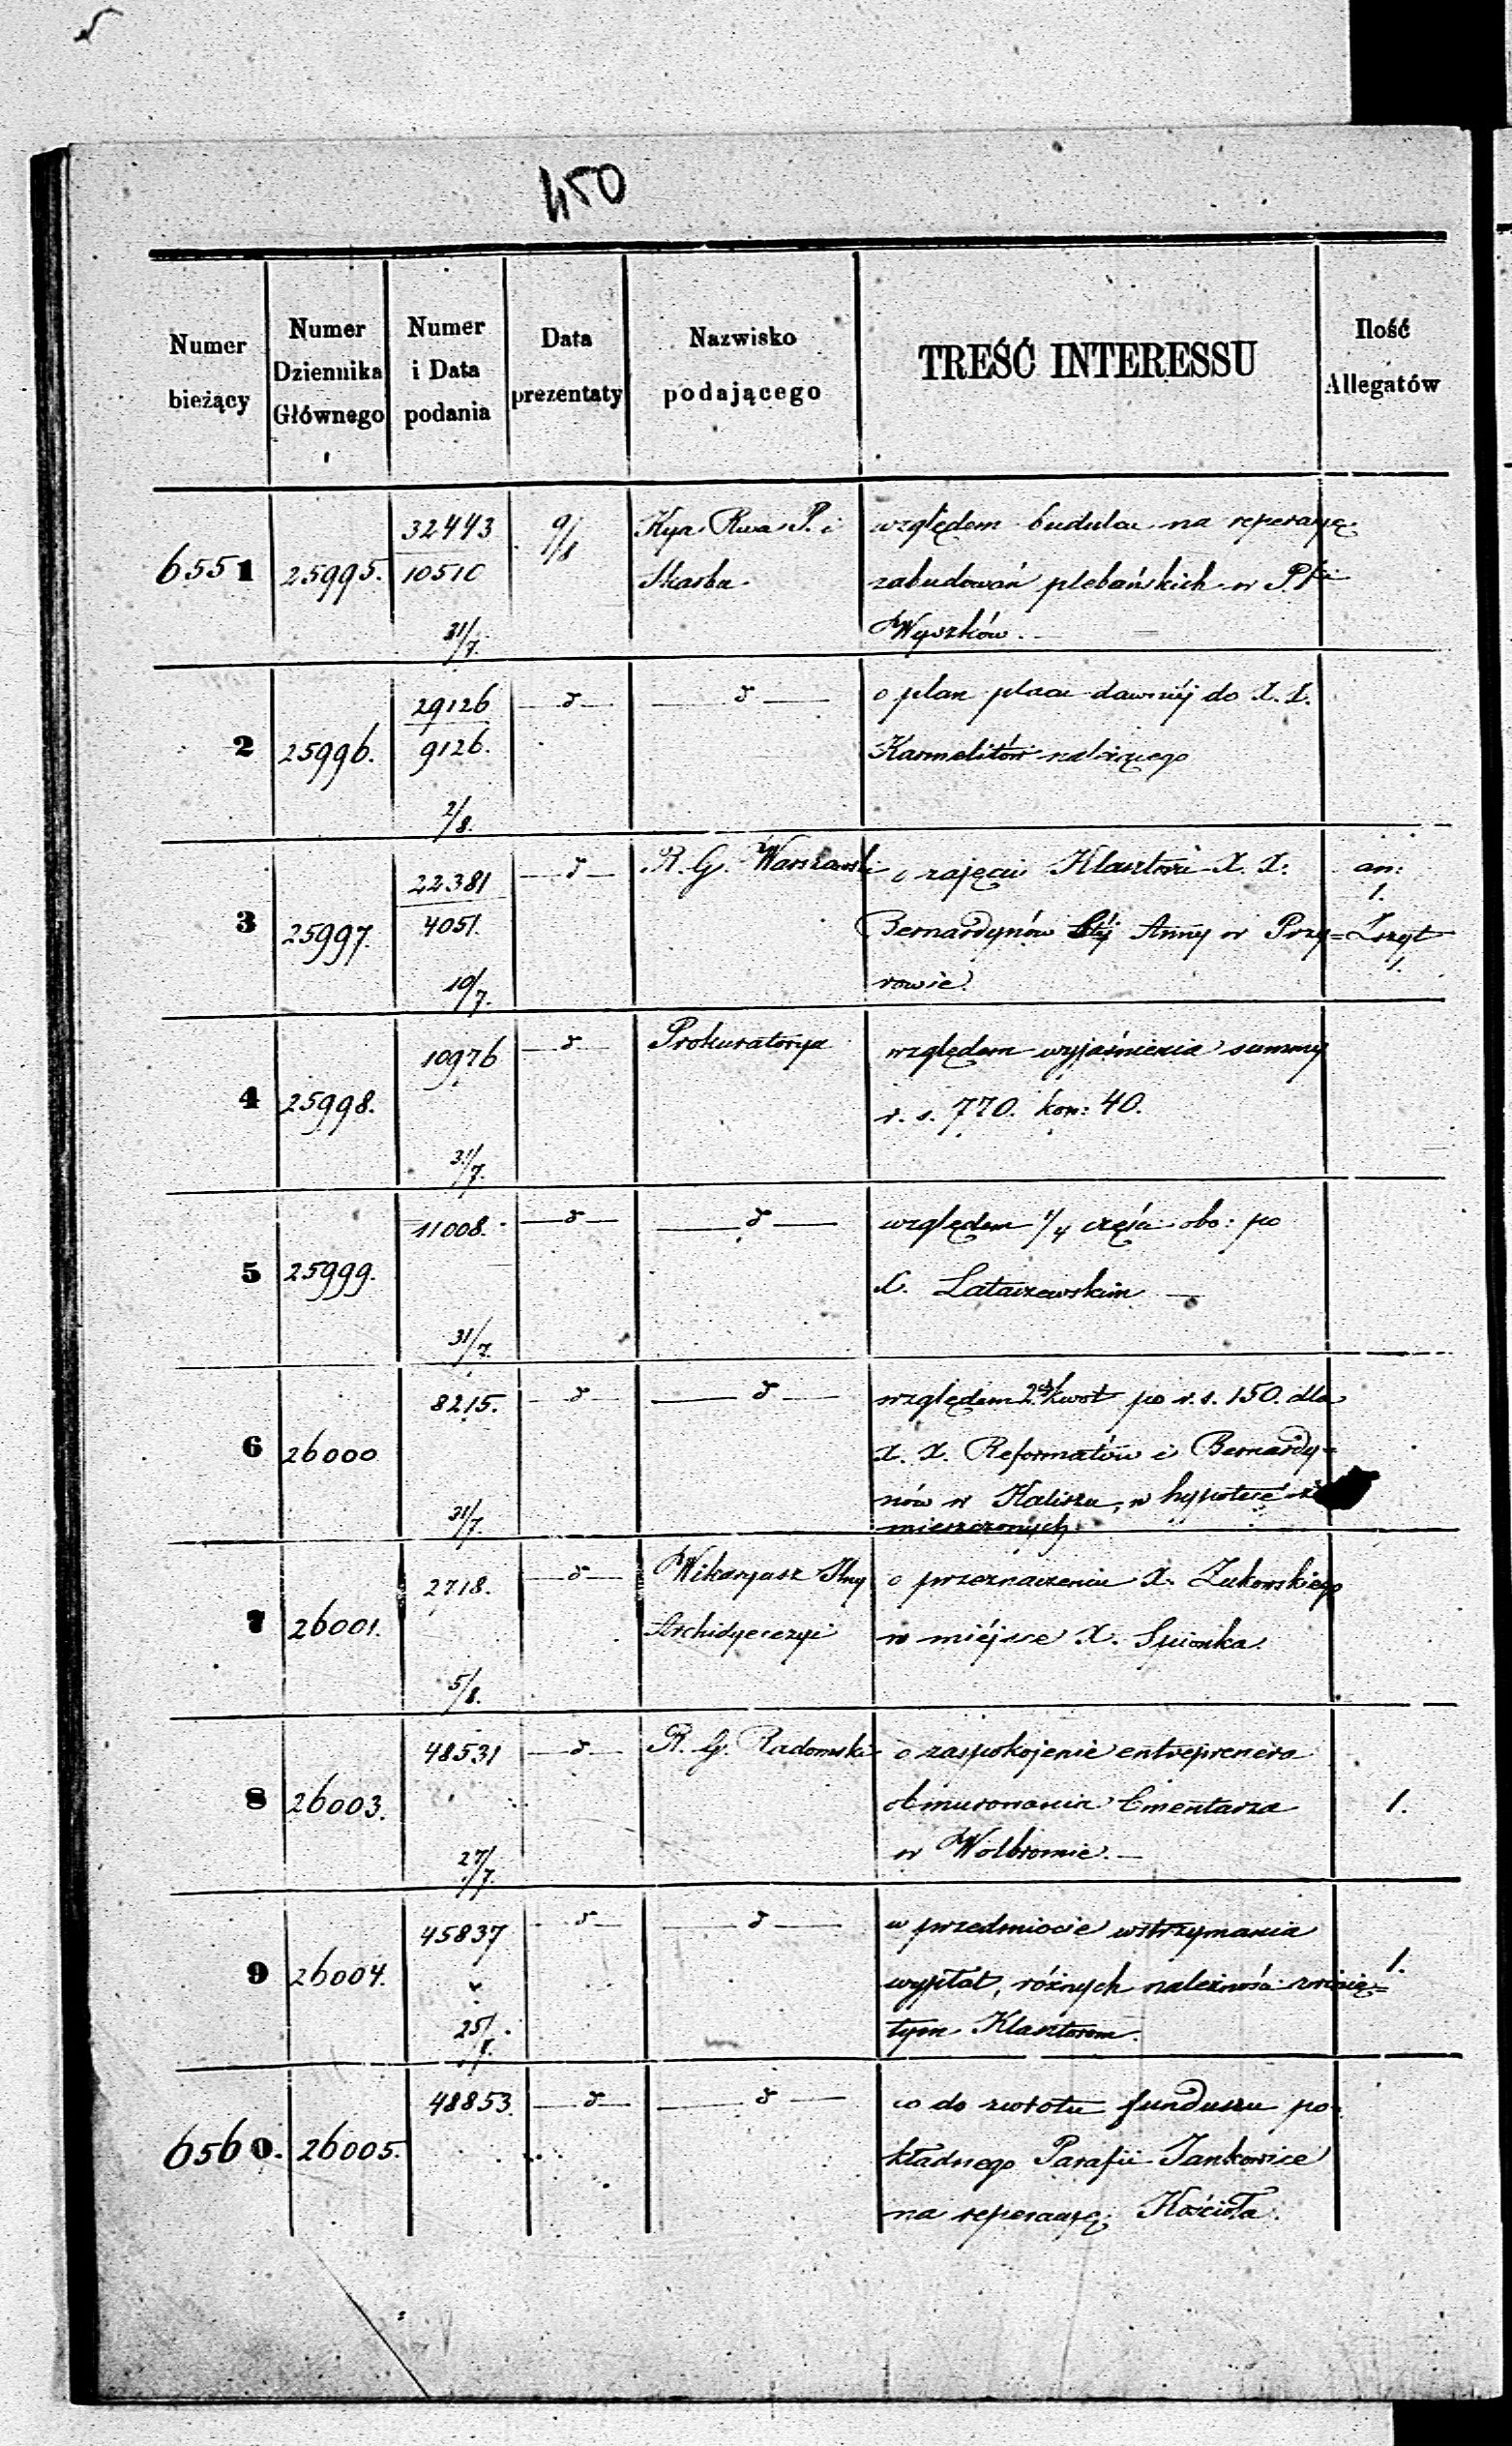 450
Numer bieżący
Numer Dziennika Głównego
Numer i Data podania
Data prezentaty
Nazwisko podającego
TREŚĆ INTERESSU
Ilość Allegatów
6551 25995. 32443 9/8 P. i względem budulcu na reperacyę
10510 Skarbu zabudowań plebańskich w
31/7. Wyszków.
2 25996. 29126 — d — — d — o plan placu dawniéj do X. X.
9126. Karmelitów należącego
2/8.
3 25997. 22381 — d — R. G. Warszawski o zajęciu Klasztoru X. X. an: 1.
4051. Bernardynów Stéj Anny w Przy= Zszyt 1.
10/7. rowie.
4 25998. 10976 — d — Prokuratorya względem wyjaśnienia summy
r. s. 770. kop: 40.
31/7.
5 25999. 11008. — d — — d — względem 1/4 części obo: po
X.
31/7.
6 26000 8215. — d — — d — względem 2ch kwot po r. s. 150. dla
X. X. Reformatów i Bernardy=
31/7. nów w Kaliszu, w hypotece
mieszczonych.
7 26001. 2718. — d — Wikaryusz o przeznaczeniu X. Żukowskiego
Archidyecezyi w miéjsce X. Spionka.
5/8.
8 26003. 48531 — d — R. G. Radomski o zaspokojenie entreprenera
obmurowania Cmentarza 1.
27/7. w Wolbromie. —
9 26004. 45837 — d — — d — w przedmiocie wstrzymania
wypłat, różnych należności zwinię= 1.
25/ tym Klasztorom.
6560. 26005. 48853. — d — — d — co do zwrotu funduszu po
kładnego Parafii Jankowice
na reperacyę Kościoła.